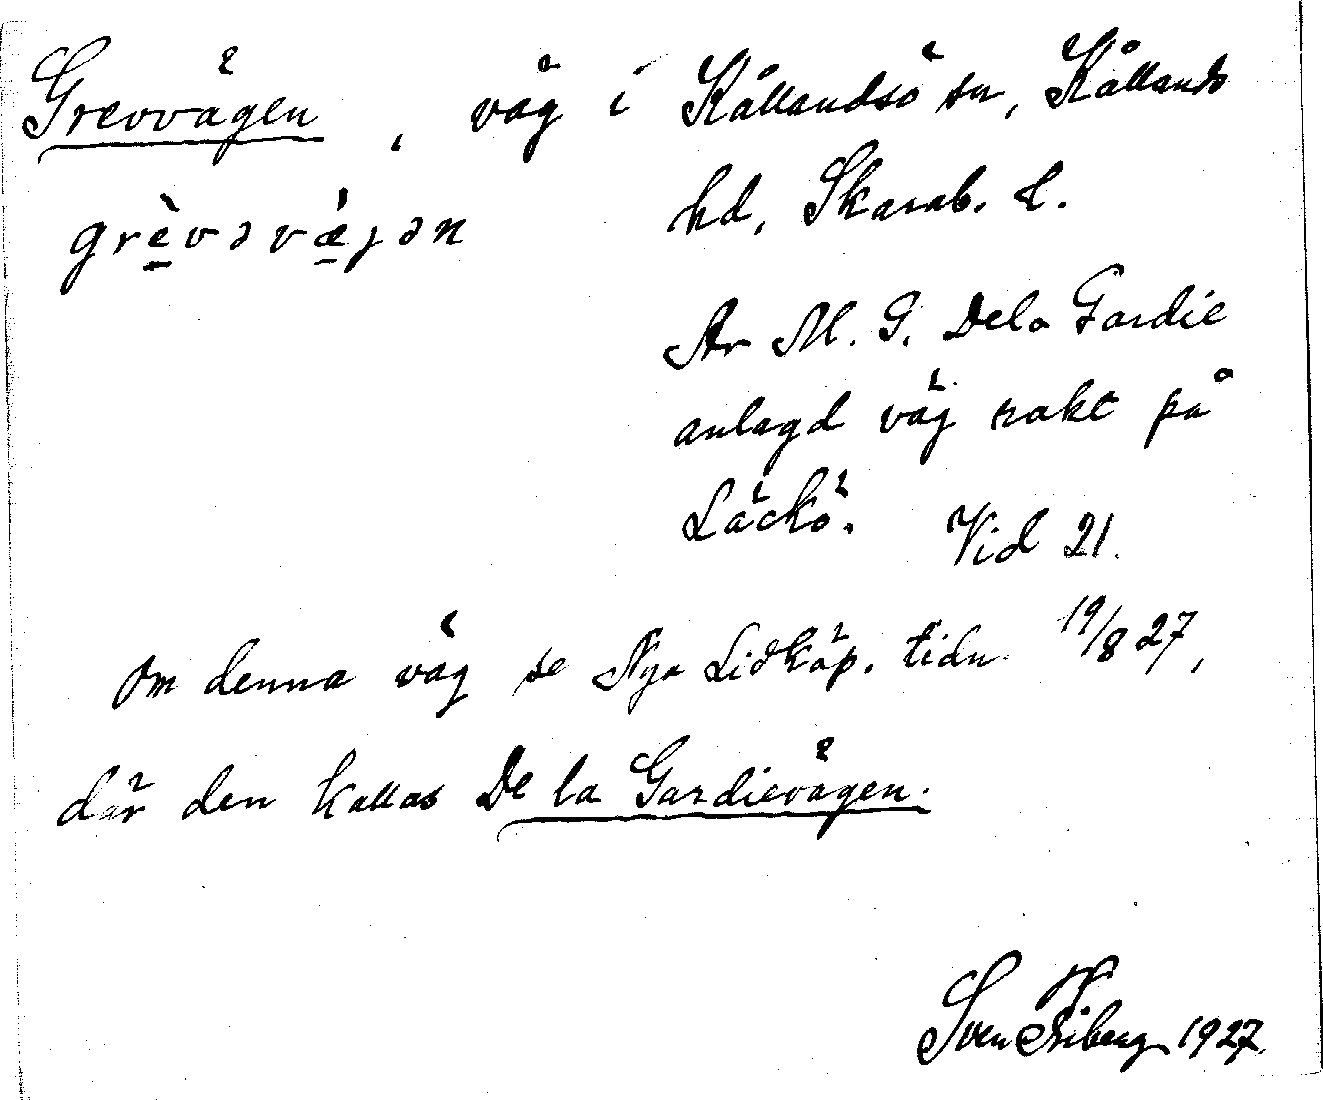 Grevvägen, väg i Kållandsö sn, Kållands
grèvəvæ̀gən hd, Skarab. l.
Av M. G. De la Gardie
anlagd väg rakt på
Läckö. Vid 21.
Om denna väg se Nya Lidköp. tidn. 19/8 27,
där den kallas De la Gardievägen.
Sven 1927.